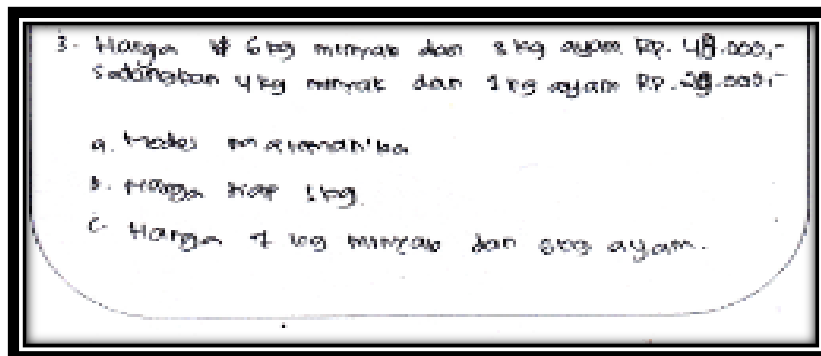 3. Harga 6 kg minyak dan kg ayam Rp. 48.000,-
Sedangkan 4 kg minyak dan 1 kg ayam Rp. 28.000,-
a. Model matematika
b. Harga tiap 1 kg
c. Harga 7 kg minyak dan 8 kg ayam.